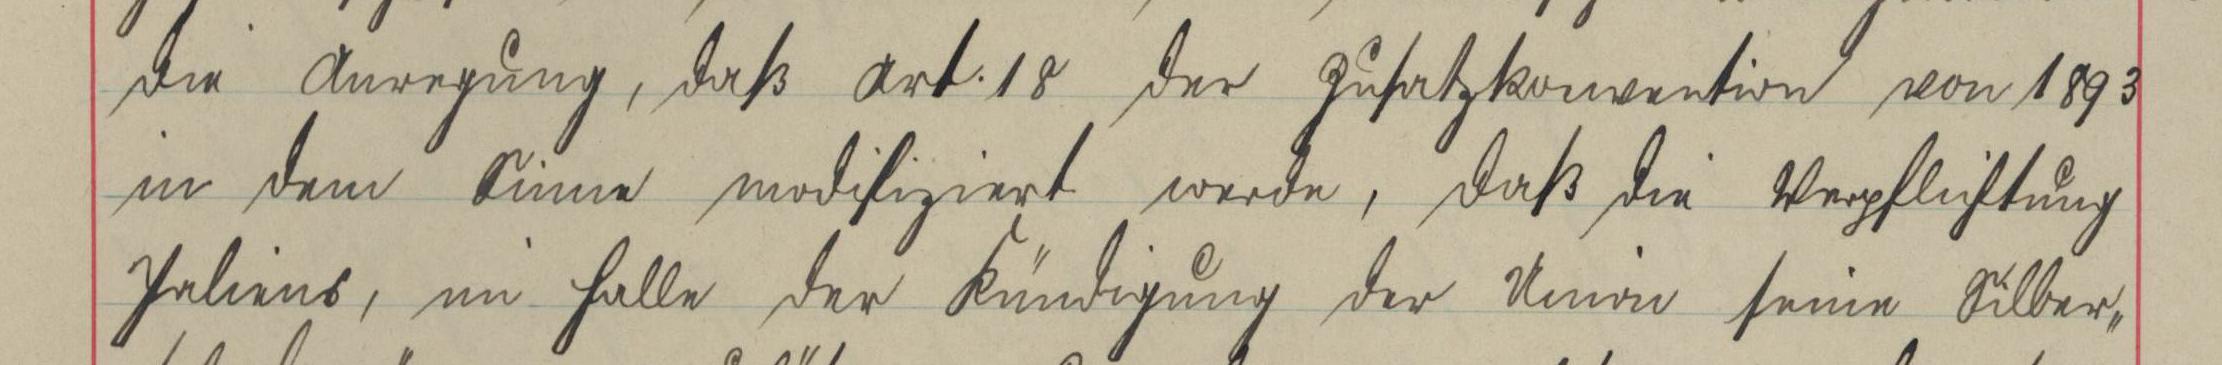 die Anregung, daß Art. 18 der Zusatzkonvention von 1893
in dem Sinne modifiziert werde, daß die Verpflichtung
Italiens, im Falle der Kündigung der Union seine Silber„